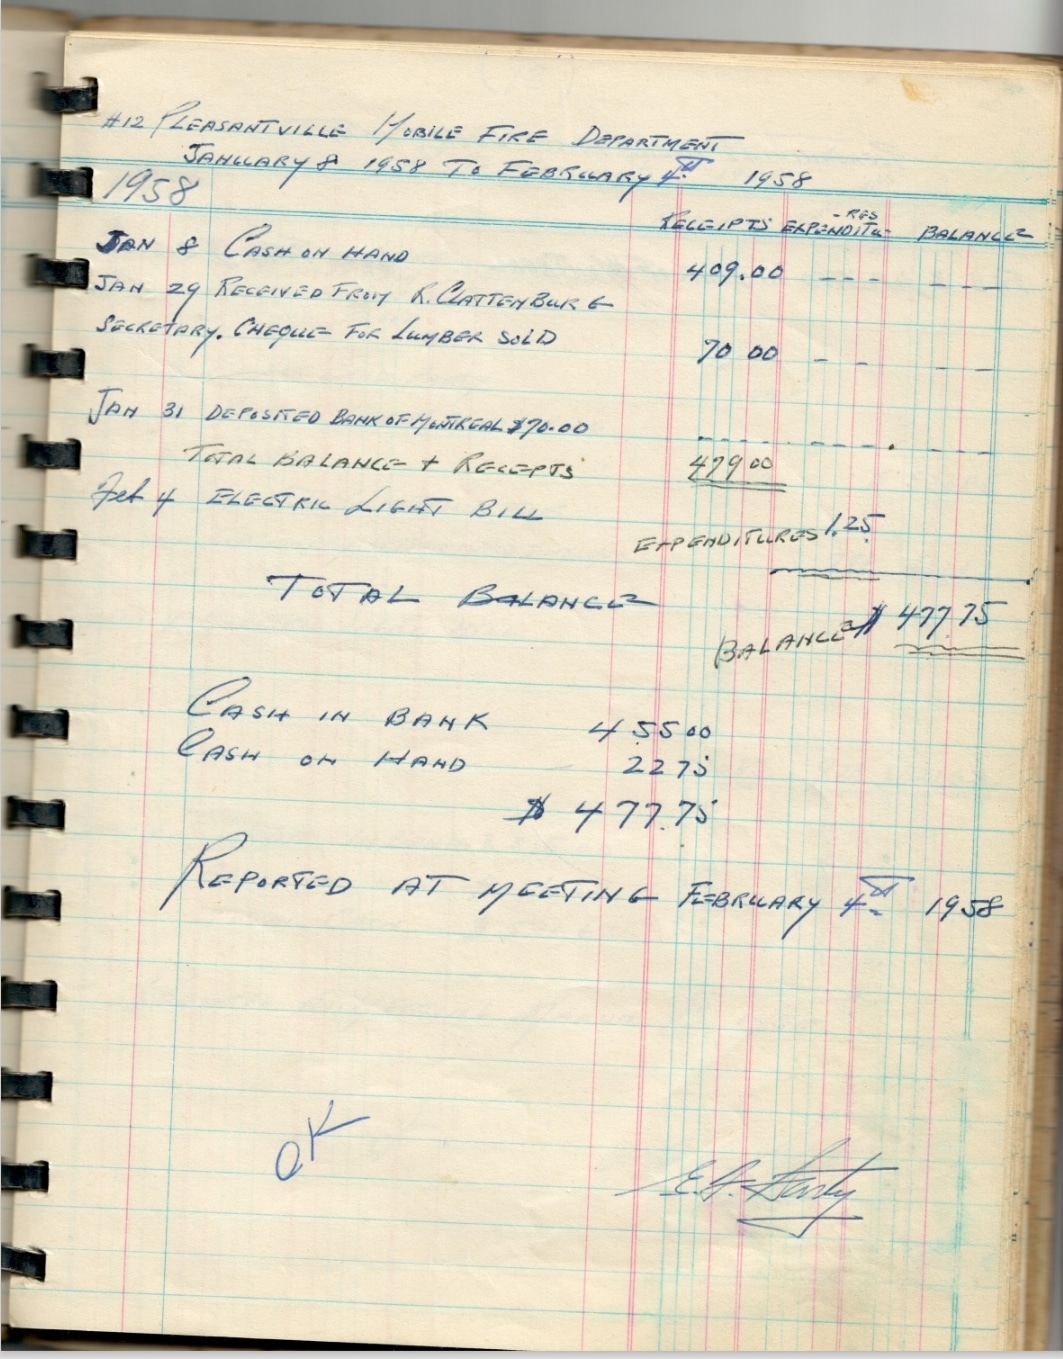 #12 PLEASANTVILLE MOBILE FIRE DEPARTMENT
JANUARY 8 1958 TO FEBRUARY 4TH 1958
1958
RECEIPTS EXPENDITU-RES BALANCE
JAN 8 CASH ON HAND 409.00 --- ---
JAN 29 RECEIVED FROM R. CLATTENBURG
SECRETARY. CHEQUE FOR LUMBER SOLD 70 00 --- ---
JAN 31 DEPOSITED BANK OF MONTREAL $70.00
TOTAL BALANCE + RECEIPTS 479 00
Feb 4 ELECTRIC LIGHT BILL
EXPENDITURES 1.25
TOTAL BALANCE
BALANCE $ 477 75
CASH IN BANK 455 00
CASH ON HAND 22 75
$ 477.75
REPORTED AT MEETING FEBRUARY 4TH 1958
OK
E.